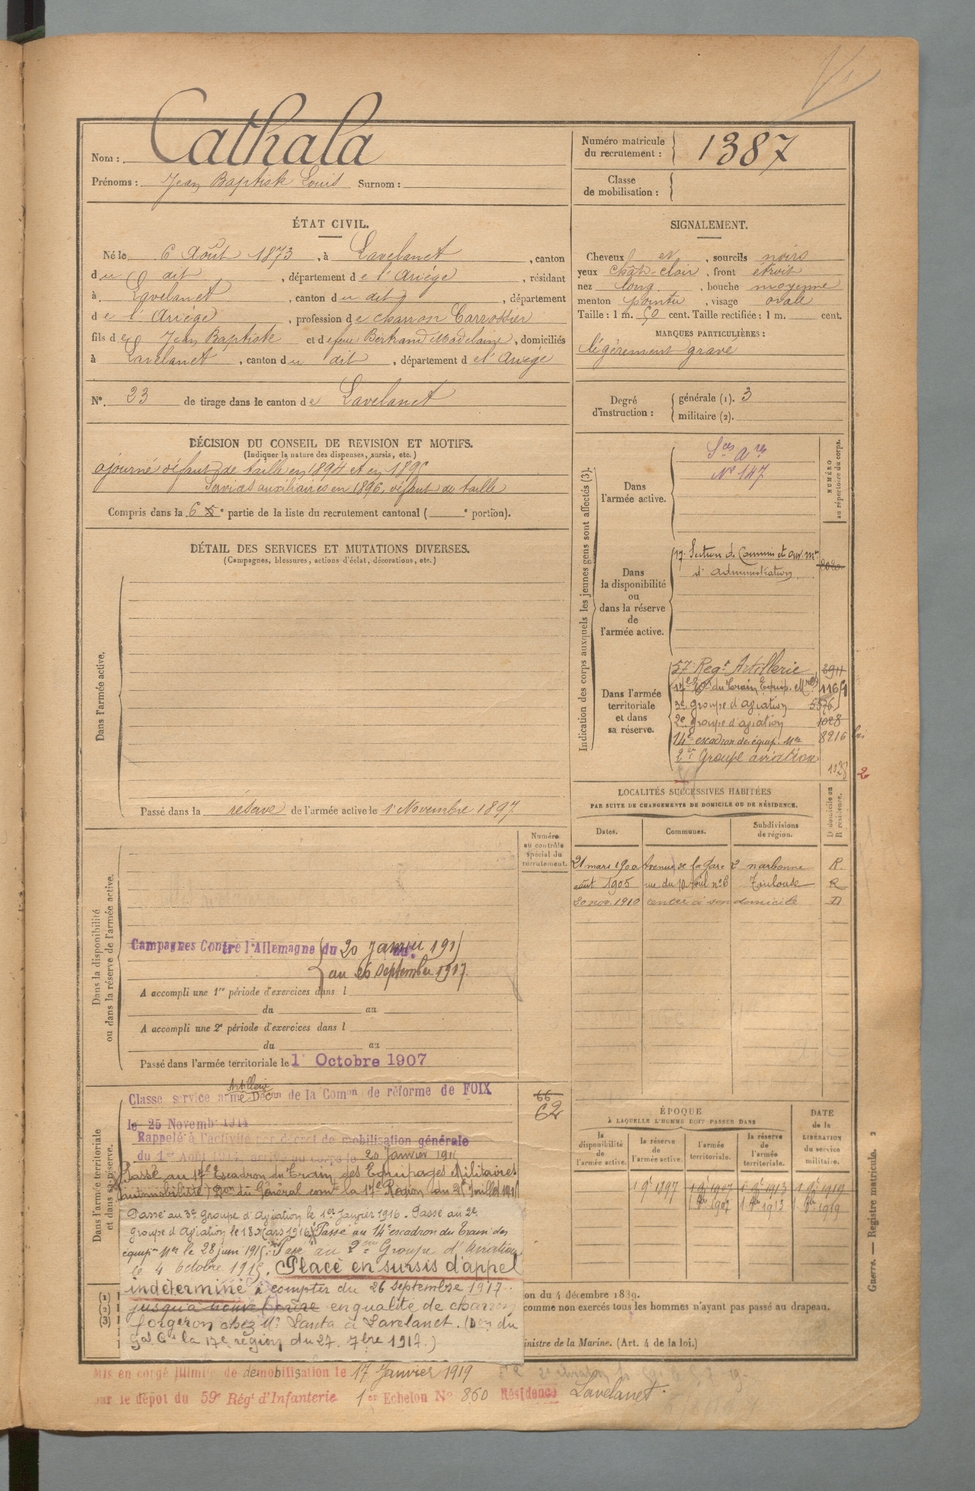 Nom : Cathala
Prénoms : Jean Baptiste Louis Surnom :
Numéro matricule du recrutement : 1387
Classe de mobilisation :
ÉTAT CIVIL.
Né le 6 Août 1873, à Lavelanet, canton
du dit, département de l'Ariège, résidant
à Lavelanet, canton du dit, département
de l'Ariège, profession de charron Carrossier
fils de Jean Baptiste et de feue Bertrand Madelaine, domiciliés
à Lavelanet, canton du dit, département de l'Ariège
N° 23 de tirage dans le canton de Lavelanet
SIGNALEMENT.
Cheveux et, sourcils noirs
yeux chat-clair, front étroit
nez long, bouche moyenne
menton pointu, visage ovale
Taille : 1 m. 50 cent. Taille rectifiée : 1 m. cent.
MARQUES PARTICULIÈRES :
légèrement gravé
Degré d'instruction : générale (1). 3
militaire (2).
DÉCISION DU CONSEIL DE REVISION ET MOTIFS.
(Indiquer la nature des dispenses, sursis, etc.)
ajourné défaut de taille en 1894 et en 1895
Services auxiliaires en 1896, défaut de taille
Compris dans la 6e partie de la liste du recrutement cantonal ( e portion).
DÉTAIL DES SERVICES ET MUTATIONS DIVERSES.
(Campagnes, blessures, actions d'éclat, décorations, etc.)
Dans l'armée active.
Passé dans la réserve de l'armée active le 1 Novembre 1897
Indication des corps auxquels les jeunes gens sont affectés (3).
NUMÉRO au répertoire du corps.
Dans l'armée active.
N° 147
Dans la disponibilité ou dans la réserve de l'armée active.
17e Section de Commis et ouv. mres
d'administration
Dans l'armée territoriale et dans sa réserve.
57 Regt Artillerie
17e Eon du Train Equip. Mres
3e groupe d'aviation
2e groupe d'aviation 1028
14e escadron de équip. mre 8216
2e Groupe aviation
2
LOCALITÉS SUCCESSIVES HABITÉES
PAR SUITE DE CHANGEMENTS DE DOMICILE OU DE RÉSIDENCE.
Dates. Communes. Subdivisions de région. D domicile ou R résidence.
21 mars 1900 Avenue de la Gare 2 narbonne R
août 1905 rue du 10 Avril n°6 Toulouse R
20 nov. 1910 rentré à son domicile D
Numéro au contrôle spécial du recrutement.
Dans la disponibilité ou dans la réserve de l'armée active.
Campagnes Contre l'Allemagne du 20 Janvier 191
au 26 septembre 1917
A accompli une 1re période d'exercices dans l
du au
A accompli une 2e période d'exercices dans l
du au
Passé dans l'armée territoriale le 1 Octobre 1907
Dans l'armée territoriale et dans sa réserve.
Classé service armé Artillerie Décon de la Comon de réforme de FOIX
le 25 Novembre 1914
62
Rappelé à l'activité par décret de mobilisation générale
du 1er Août 1914, arrivé au corps le 20 Janvier 191
Passé au 17e Escadron du Train des Equipages Militaires
Passé au 3e Groupe d'Aviation le 1er Janvier 1916. Passé au 2e
groupe d'Aviation le 18 Mars 1916. Passé au 14e escadron du Train des
équip. mres le 28 juin 191. Passé au 2me Groupe d'Aviation
le 4 octobre 191. Placé en sursis d'appel
indéterminé à compter du 26 septembre 1917
jusqu'à nouvel ordre en qualité de charron
forgeron chez Mr à Lavelanet. (Don du
Gal Ct la 17e région du 27. 7bre 1917.)
ÉPOQUE
À LAQUELLE L'HOMME DOIT PASSER DANS
DATE de la LIBÉRATION du service militaire.
la disponibilité de l'armée active. la réserve de l'armée active. l'armée territoriale. la réserve de l'armée territoriale.
1 9bre 1897 1 8bre 1907 1 8bre 1913 1 8bre 1919
1 8bre 1907 1 8bre 1913 1 8bre 1919
(1)
(2)
(3)
on du 4 décembre 1889.
comme non exercés tous les hommes n'ayant pas passé au drapeau.
inistre de la Marine. (Art. 4 de la loi.)
Guerre. — Registre matricule. 2
Mis en congé illimité de démobilisation le 17 Janvier 1919
par le dépôt du 59e Régt d'Infanterie 1er Echelon N° 860 Résidence Lavelanet.